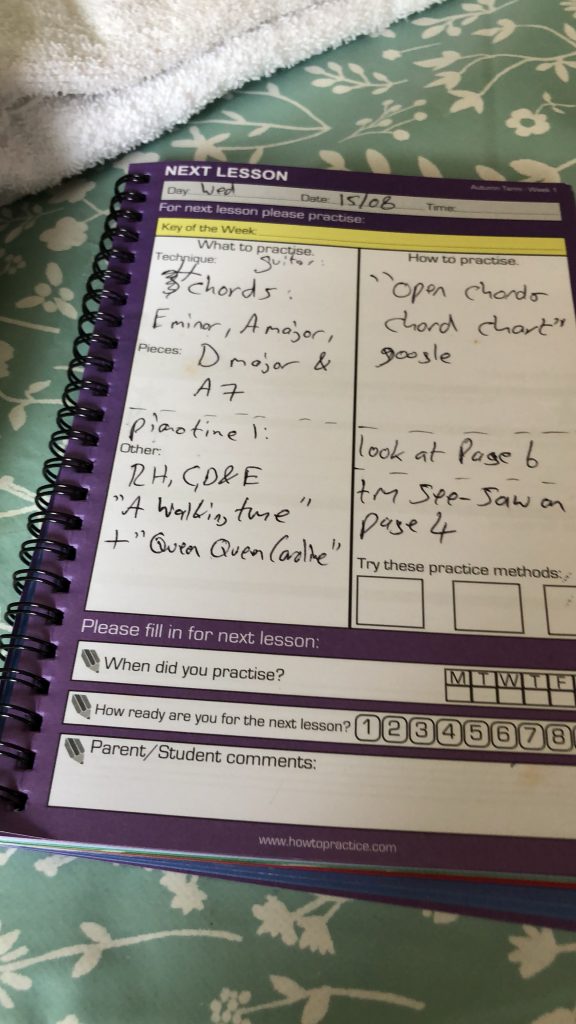 NEXT LESSON
Autumn Term - Week 1
Day: Wed Date: 15/08 Time:
For next lesson please practise:
Key of the Week:
What to practise.
How to practise.
Technique: guitar:
chords:
E minor, A major,
Pieces: D major &
A7
"Open chords
chord chart"
google
1:
Other:
RH, C, D & E
"A Walking tune"
+ "Queen Queen Caroline"
look at Page 6
try See-Saw on
page 4
Try these practice methods:
Please fill in for next lesson:
When did you practise?
M T W T F
How ready are you for the next lesson? 1 2 3 4 5 6 7 8
Parent/Student comments:
www.howtopractice.com